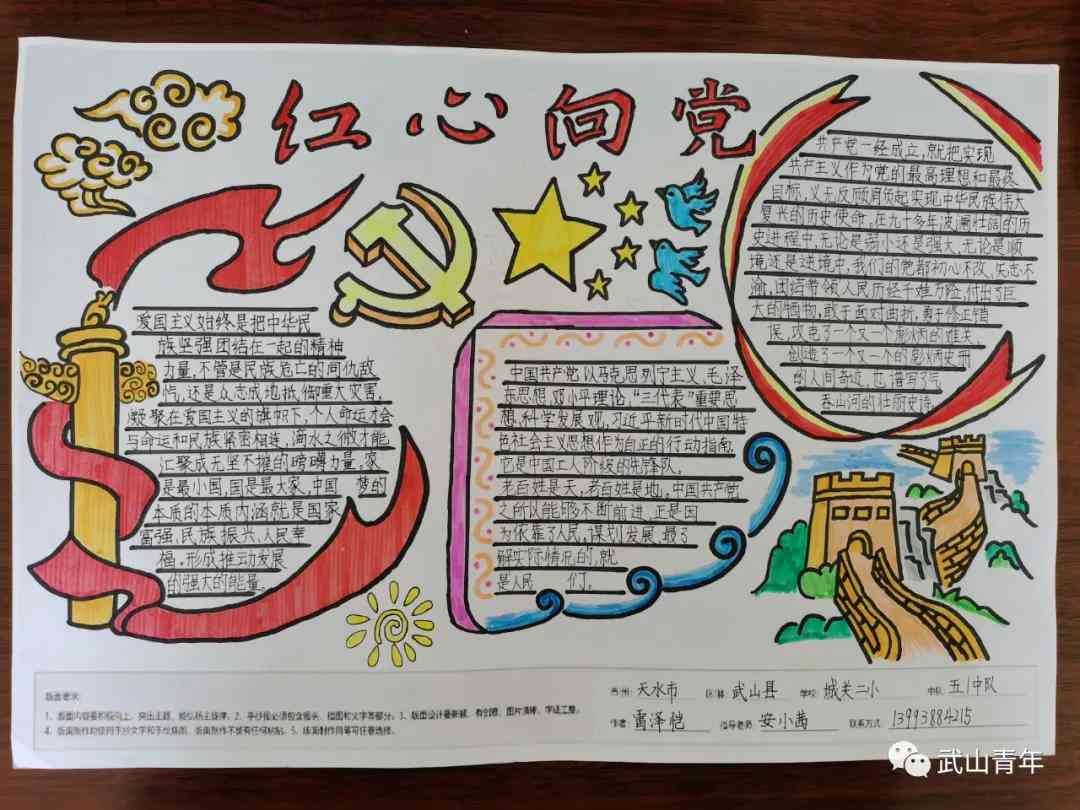 红心向党
爱国主义始终是把中华民
族坚强团结在一起的精神
力量,不管是民族危亡的同仇敌
忾,还是众志成地抵御重大灾害,
凝聚在爱国主义的旗帜下,个人命运才会
与命运和民族紧密相连,滴水之微才能
汇聚成无坚不摧的磅礴力量。家
是最小国,国是最大家,中国 梦的
本质的本质内涵就是国家
富强、民族振兴、人民幸
福。形成推动发展
的强大的能量。
中国共产党以马克思列宁主义、毛泽
东思想、邓小平理论、“三代表”重要思
想、科学发展观、习近平新时代中国特
色社会主义思想作为自正的行动指南,
它是中国工人阶级的先锋队。
老百姓是天,老百姓是地。中国共产党
之所以能够不断前进,正是因
为依靠了人民,谋划发展,最了
解实际情况的,就
是人民 们。
共产党一经成立,就把实现
共产主义作为党的最高理想和最终
目标,义无反顾肩负起实现中华民族伟大
复兴的历史使命,在九十多年波澜壮阔的历
史进程中,无论是弱小还是强大,无论是顺
境还是逆境中,我们的党都初心不改,矢志不
渝,团结带领人民历经千难万险,付出了巨
大的牺牲,敢于面对曲折,勇于修正错
误,攻克了一个又一个 的难关,
创造了一个又一个的彪炳史册
的人间奇迹,也谱写了气
吞山河的壮丽史诗。
版面要求:
1、版面内容要积极向上,突出主题,能弘扬主旋律。2、手抄报必须包含报头、插图和文字等部分。3、版面设计要新颖,有创意,图片清晰,字迹工整。
4、版面制作均使用手抄文字和手绘插图,版面制作不能有任何粘贴。5、版面制作简笔可任意选择。
市州: 天水市 区县: 武山县 学校: 城关二小 中队: 五1中队
作者: 雷泽恺 指导老师: 安小茜 联系方式: 13993884215
武山青年